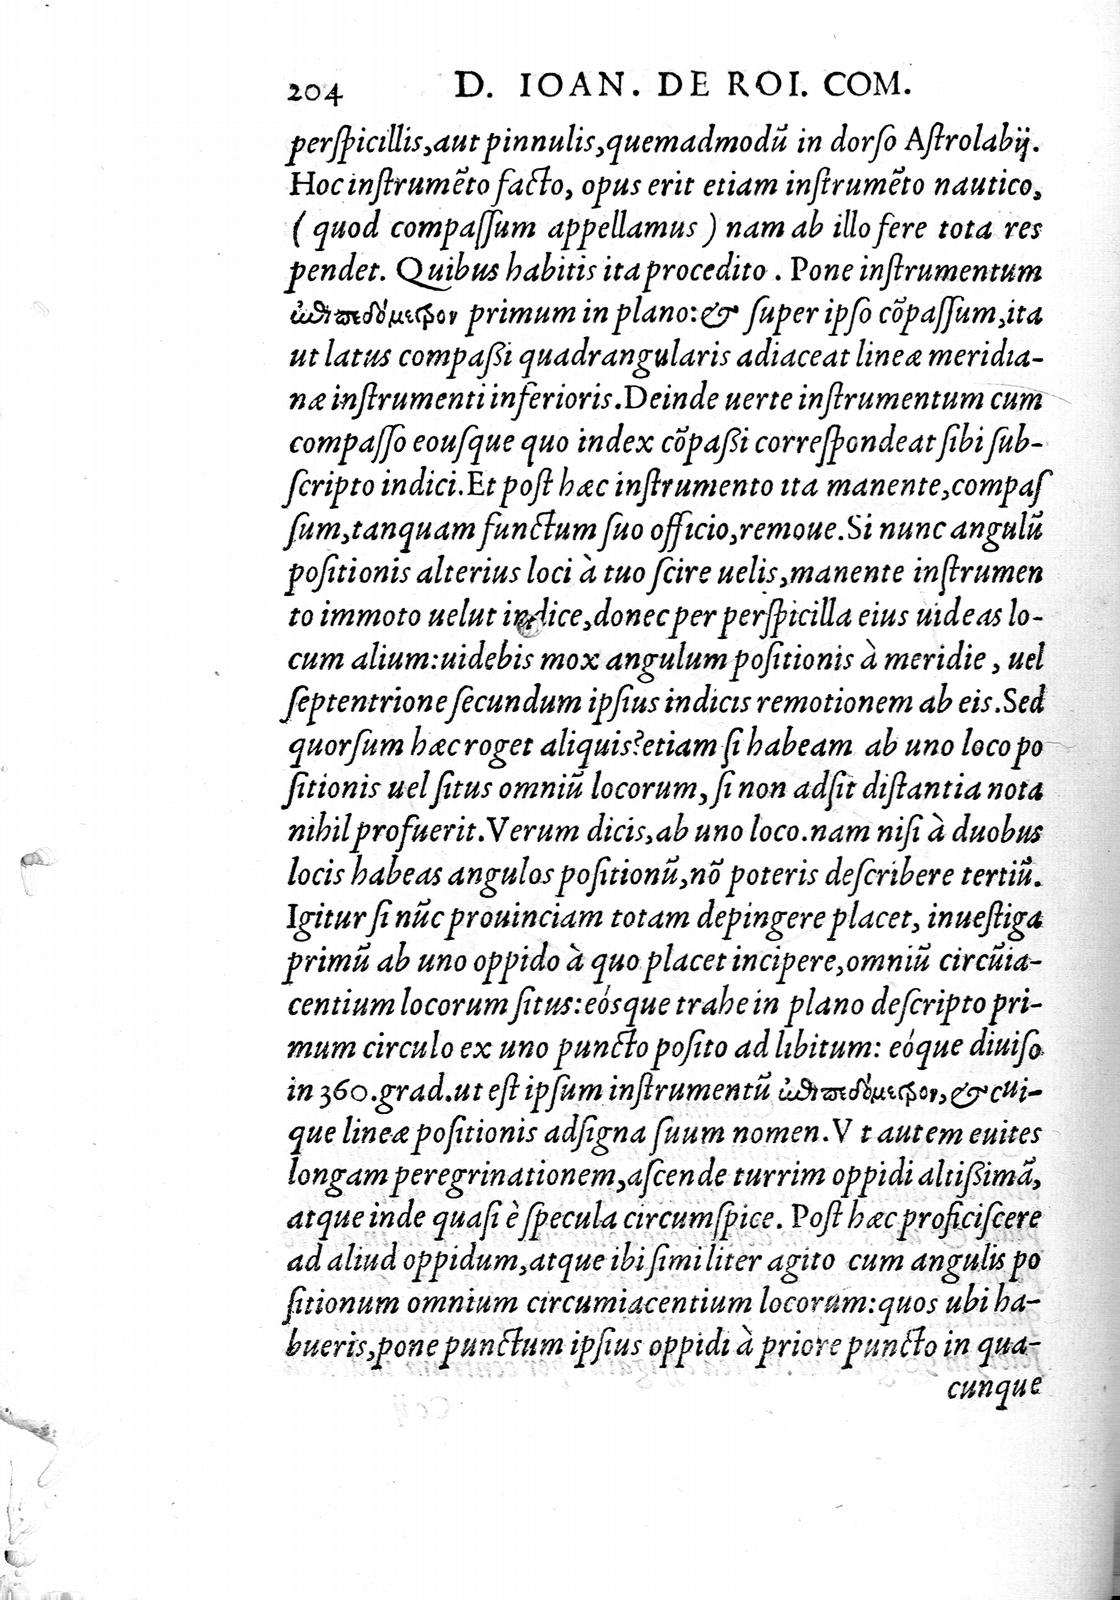 204 D. IOAN. DE ROI. COM.
perſpicillis,aut pinnulis,quemadmodū in dorſo Aſtrolabij.
Hoc inſtrumēto facto, opus erit etiam inſtrumēto nautico,
( quod compaſſum appellamus ) nam ab illo fere tota res
pendet. Quibus habitis ita procedito . Pone inſtrumentum
primum in plano:& ſuper ipſo cōpaſſum,ita
ut latus compaßi quadrangularis adiaceat lineæ meridia-
næ inſtrumenti inferioris.Deinde uerte inſtrumentum cum
compaſſo eouſque quo index cōpaßi correſpondeat ſibi ſub-
ſcripto indici.Et poſt hæc inſtrumento ita manente,compaſ
ſum,tanquam functum ſuo officio,remoue.Si nunc angulū
poſitionis alterius loci à tuo ſcire uelis,manente inſtrumen
to immoto uelut indice,donec per perſpicilla eius uideas lo-
cum alium:uidebis mox angulum poſitionis à meridie , uel
ſeptentrione ſecundum ipſius indicis remotionem ab eis.Sed
quorſum hæc roget aliquis?etiam ſi habeam ab uno loco po
ſitionis uel ſitus omniū locorum, ſi non adſit diſtantia nota
nihil profuerit.Verum dicis,ab uno loco.nam niſi à duobus
locis habeas angulos poſitionū,nō poteris deſcribere tertiū.
Igitur ſi nūc prouinciam totam depingere placet, inueſtiga
primū ab uno oppido à quo placet incipere,omniū circūia-
centium locorum ſitus:eósque trahe in plano deſcripto pri-
mum circulo ex uno puncto poſito ad libitum: eóque diuiſo
in 360.grad.ut eſt ipſum inſtrumentū & cui-
que lineæ poſitionis adſigna ſuum nomen.V t autem euites
longam peregrinationem,aſcende turrim oppidi altißimā,
atque inde quaſi è ſpecula circumſpice. Poſt hæc proficiſcere
ad aliud oppidum,atque ibi ſimiliter agito cum angulis po
ſitionum omnium circumiacentium locorum:quos ubi ha-
bueris,pone punctum ipſius oppidi à priore puncto in qua-
cunque